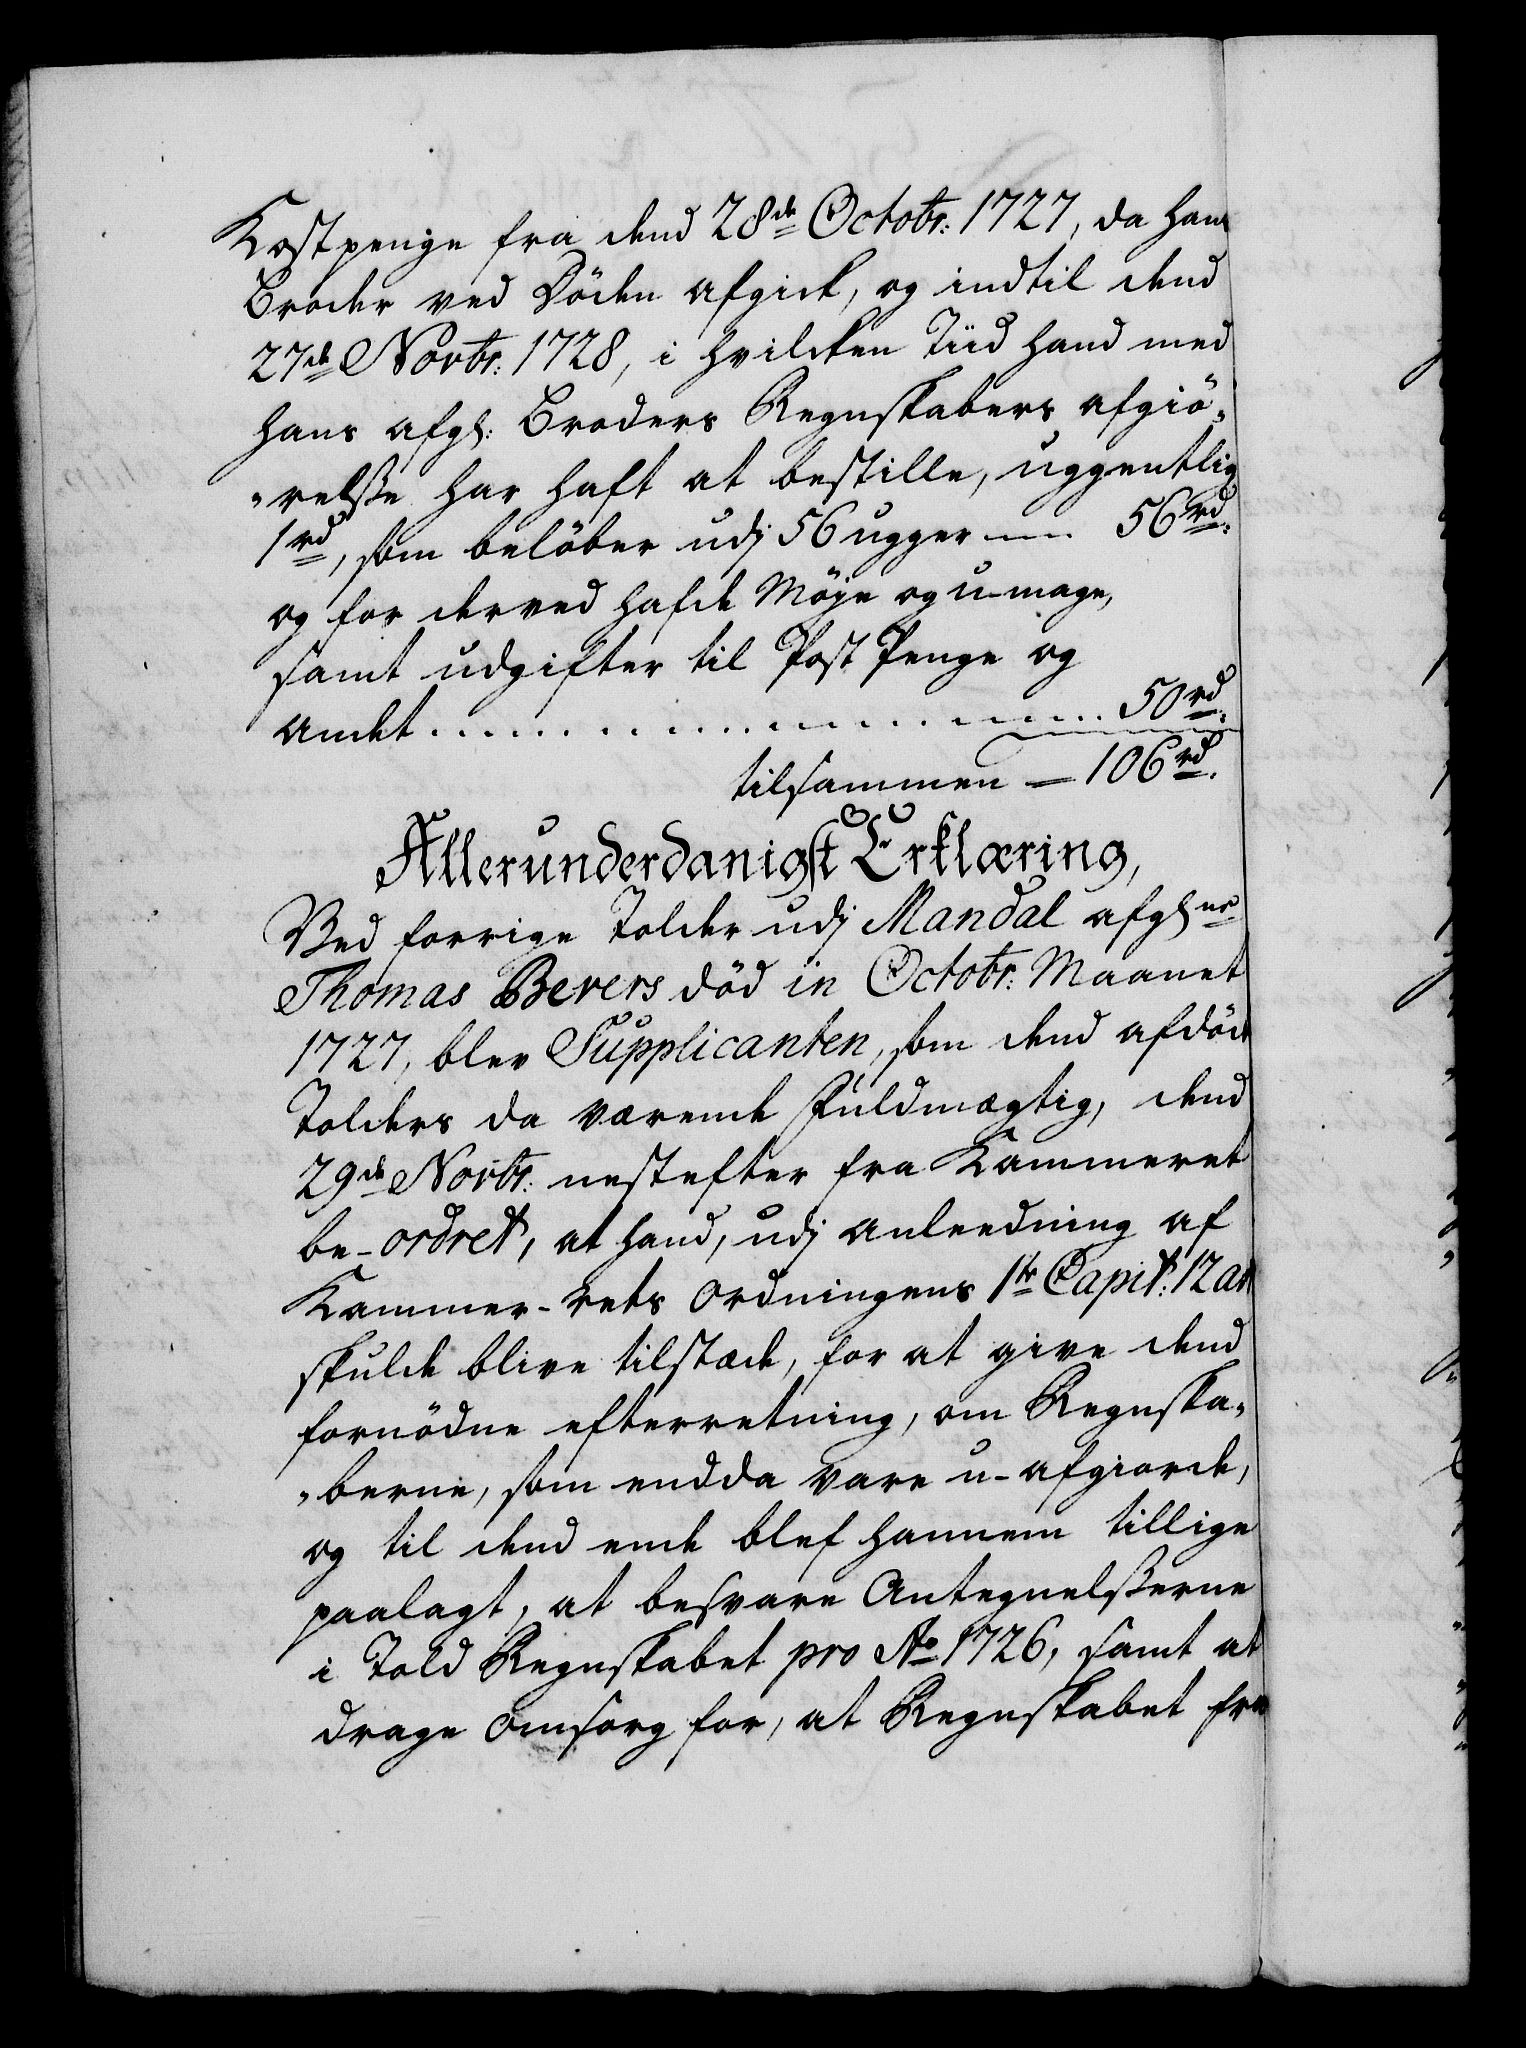 Kostpenge fra dend 28de Octobr: 1727, da hans
Broder ved Döden afgick, og indtil dend
27de Novbr: 1728, i hvilcken Tiid hand med
hans afgl: Broders Regnskabers afgiö„
„relsse har haft at bestille, uggentlig
1 rd, som belöber udj 56 ugger — 56 rd:
og for derved hafde Möje og u-mage,
samt udgifter til Post Penge og
andet . . . . . . . . . . . . . . . . 50 rd:
tilsammen — 106 rd.
Allerunderdanigst Erklæring,
Ved forrige Tolder udj Mandal afgl ne
Thomas Bevers död in Octobr: Maanet
1727, blev Supplicanten, som dend afdöde
Tolders da værende Fuldmægtig, dend
29de Novbr: nestefter fra Kammeret
be-ordret, at hand, udj anleedning af
Kammer-Rets Ordningens 1te Capit: 12 art
skulde blive tilstæde, for at give dend
fornödne efterretning, om Regnska„
„berne, som endda vare u-afgiorde,
og til dend ende blef hannem tillige
paalagt, at besvare Antegnelsserne
i Told Regnskabet pro Ao 1726, samt at
drage omsorg for, at Regnskabet fra